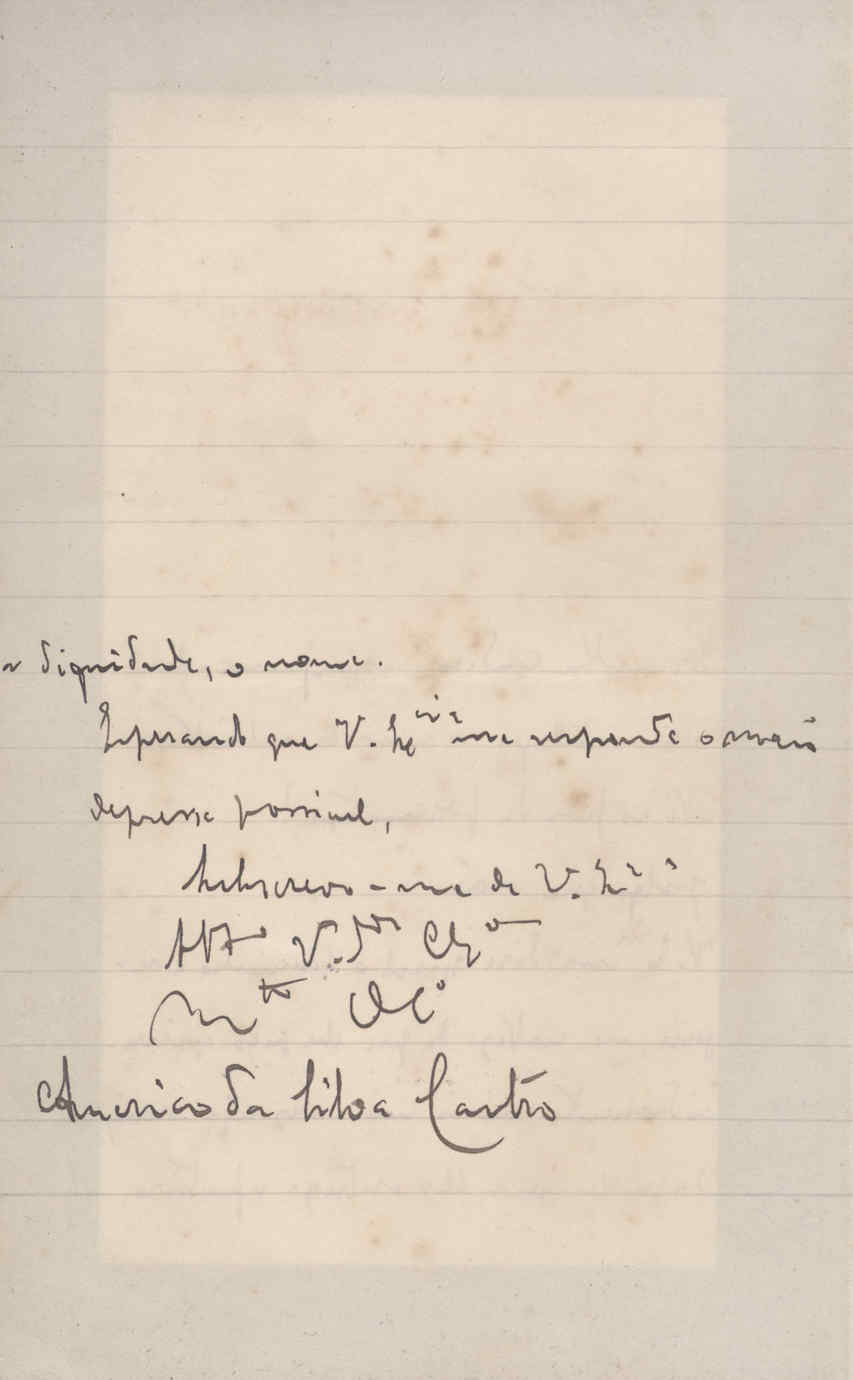 a dignidade, o nome.
Esperando que V. Ex.cia me responda o mais
depressa possivel,
Subscrevo-me de V. Ex.a
Att.o V.dor Obg.o
M.to
Americo da Silva Castro